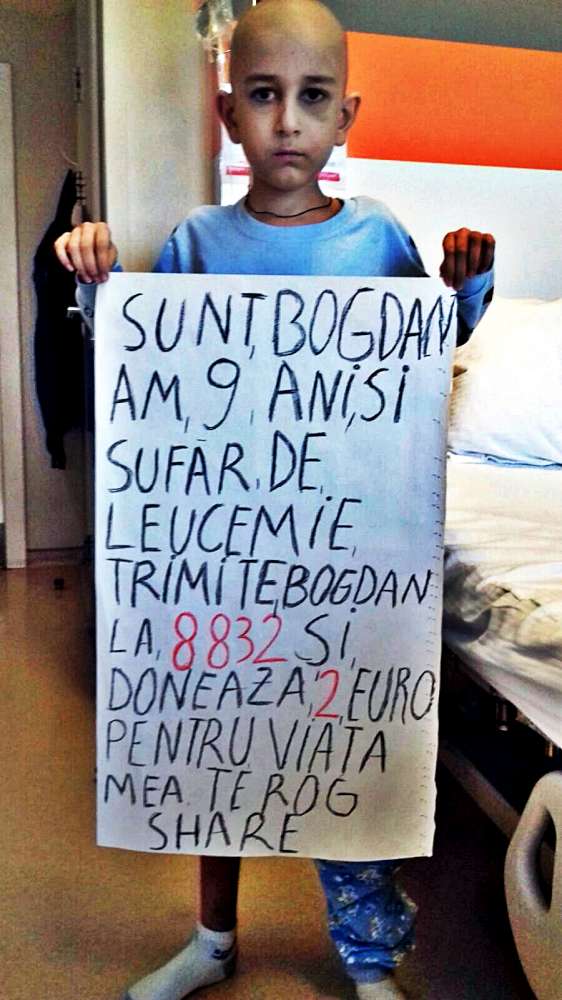 SUNT, BOGDAN
AM, 9, ANI, SI
SUFĂR, DE,
LEUCEMIE,
TRIMITE, BOGDAN
LA, 8832 SI,
DONEAZA, 2, EURO
PENTRU, VIATA
MEA. TE ROG
SHARE